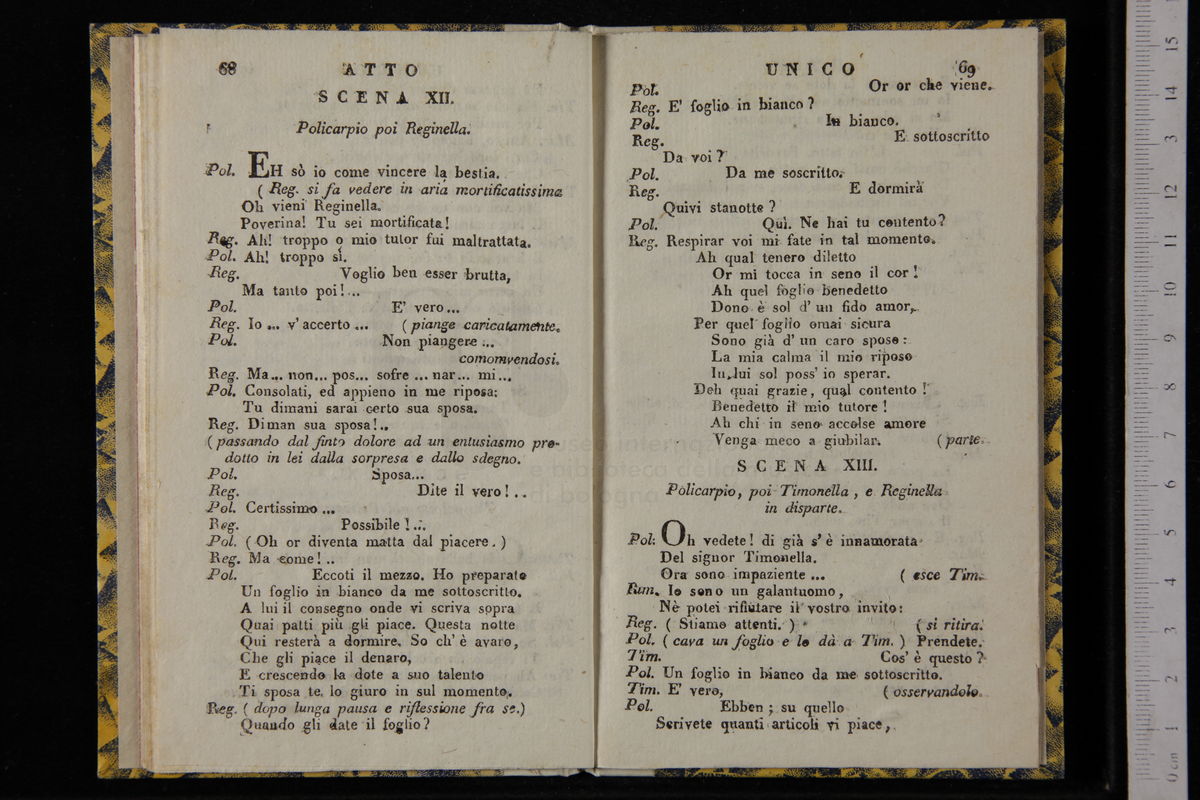 68
ATTO
SCENA XII.
Policarpio poi Reginella.
Pol. EH sò io come vincere la bestia.
( Reg. si fa vedere in aria mortificatissima
Oh vieni Reginella.
Poverina! Tu sei mortificata!
Reg. Ah! troppo o mio tutor fui maltrattata.
Pol. Ah! troppo sì.
Reg. Voglio ben esser brutta,
Ma tanto poi!...
Pol. E' vero...
Reg. Io ... v'accerto ... ( piange caricatamente.
Pol. Non piangere ...
comomvendosi.
Reg. Ma... non... pos... sofre ... nar... mi...
Pol. Consolati, ed appieno in me riposa:
Tu dimani sarai certo sua sposa.
Reg. Diman sua sposa!..
( passando dal finto dolore ad un entusiasmo pro-
dotto in lei dalla sorpresa e dallo sdegno.
Pol. Sposa...
Reg. Dite il vero! ..
Pol. Certissimo ...
Reg. Possibile! ...
Pol. ( Oh or diventa matta dal piacere. )
Reg. Ma come! ..
Pol. Eccoti il mezzo. Ho preparato
Un foglio in bianco da me sottoscritto.
A lui il consegno onde vi scriva sopra
Quai patti più gli piace. Questa notte
Qui resterà a dormire. So ch' è avaro,
Che gli piace il denaro,
E crescendo la dote a suo talento
Ti sposa te, lo giuro in sul momento.
Reg. ( dopo lunga pausa e riflessione fra se.)
Quando gli date il foglio?
UNICO
69
Pol. Or or che viene.
Reg. E' foglio in bianco?
Pol. In bianco.
Reg. E sottoscritto
Da voi?
Pol. Da me soscritto.
Reg. E dormirà
Quivi stanotte?
Pol. Quì. Ne hai tu contento?
Reg. Respirar voi mi fate in tal momento.
Ah qual tenero diletto
Or mi tocca in seno il cor!
Ah quel foglio benedetto
Dono è sol d' un fido amor.
Per quel foglio omai sicura
Sono già d' un caro sposo:
La mia calma il mio riposo
In lui sol poss' io sperar.
Deh quai grazie, qual contento!
Benedetto il mio tutore!
Ah chi in seno accolse amore
Venga meco a giubilar. ( parte.
SCENA XIII.
Policarpio, poi Timonella, e Reginella
in disparte.
Pol: Oh vedete! di già s' è innamorata
Del signor Timonella.
Ora sono impaziente ... ( esce Tim.
Io sono un galantuomo,
Nè potei rifiutare il vostro invito:
Reg. ( Stiamo attenti. ) ( si ritira.
Pol. ( cava un foglio e lo dà a Tim. ) Prendete.
Tim. Cos' è questo?
Pol. Un foglio in bianco da me sottoscritto.
Tim. E' vero, ( osservandolo.
Pol. Ebben; su quello
Scrivete quanti articoli vi piace,
0 cm 1 2 3 4 5 6 7 8 9 10 11 12 13 14 15